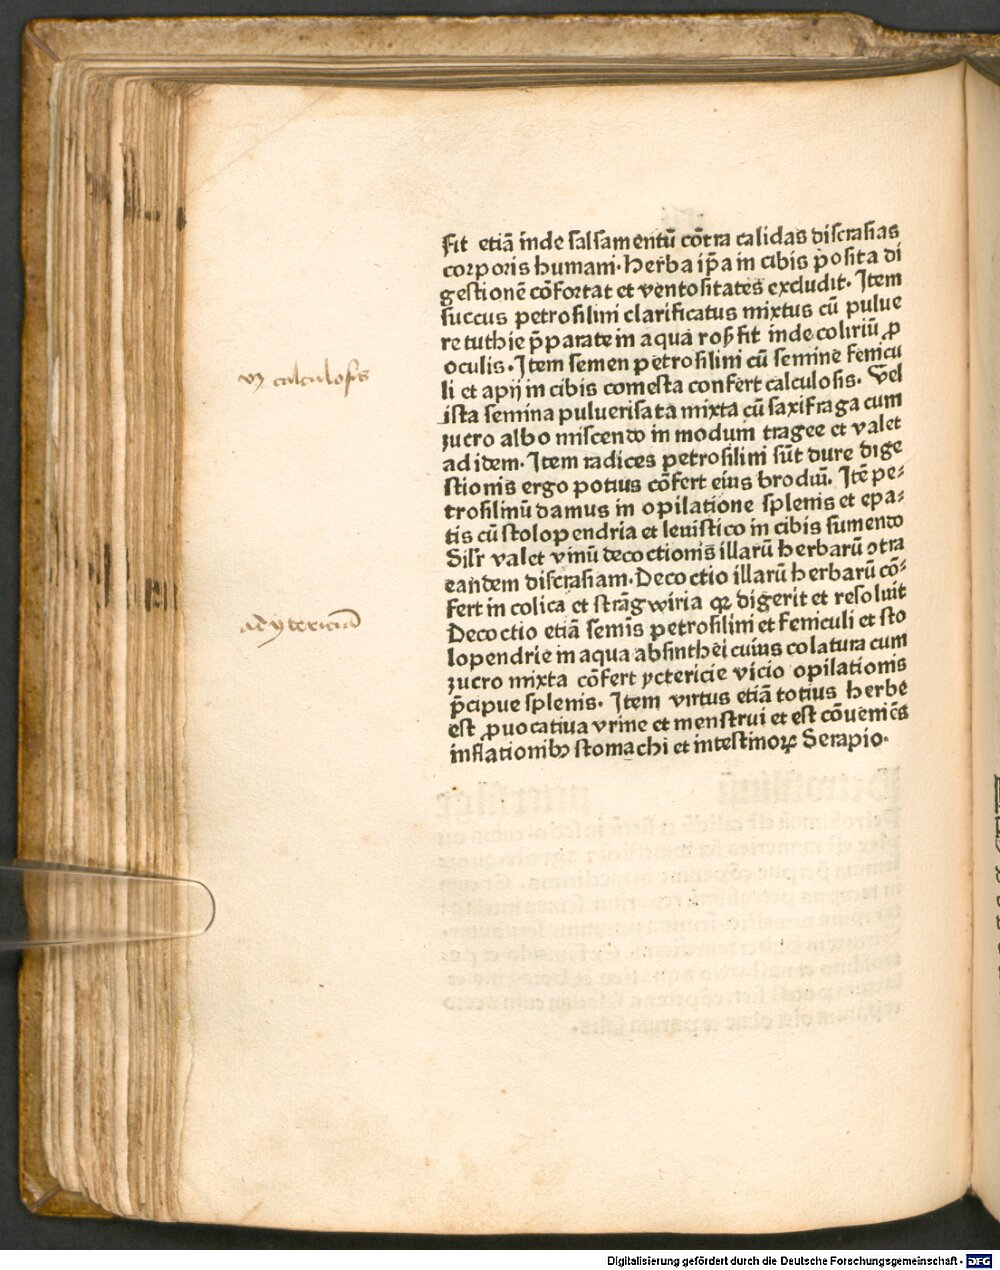 fit etiā inde salsamentū cōtra calidas discrasias
corporis humani. Herba ip̄a in cibis posita di
gestionē cōfortat et ventositates excludit. Item
succus petrosilini clarificatus mixtus cū pulue
re tuthie p̄parate in aqua roꝝ fit inde coliriū ꝓ
oculis. Item semen petrosilini cū semine fenicu
li et apij in cibis comesta confert calculosis. Vel
ista semina puluerisata mixta cū saxifraga cum
zucro albo miscendo in modum tragee et valet
ad idem. Item radices petrosilini sūt dure dige
stionis ergo potius cōfert eius brodiū. Itē pe⸗
trosilinū damus in opilatione splenis et epa⸗
tis cū stolopendria et leuistico in cibis sumendo
Silr valet vinū decoctionis illarū herbarū ↄtra
eandem discrasiam. Decoctio illarū herbarū cō⸗
fert in colica et strāgwiria qꝛ digerit et resoluit
Decoctio etiā semis petrosilini et feniculi et sto
lopendrie in aqua absinthei cuius colatura cum
zucro mixta cōfert yctericie vicio opilationis
p̄cipue splenis. Item virtus etiā totius herbe
est ꝓuocatiua vrine et menstrui et est cōueniēs
inflationibꝫ stomachi et intestinoꝝ Serapio.
vꝫ calculosis
ad ytericiā
Digitalisierung gefördert durch die Deutsche Forschungsgemeinschaft - DFG